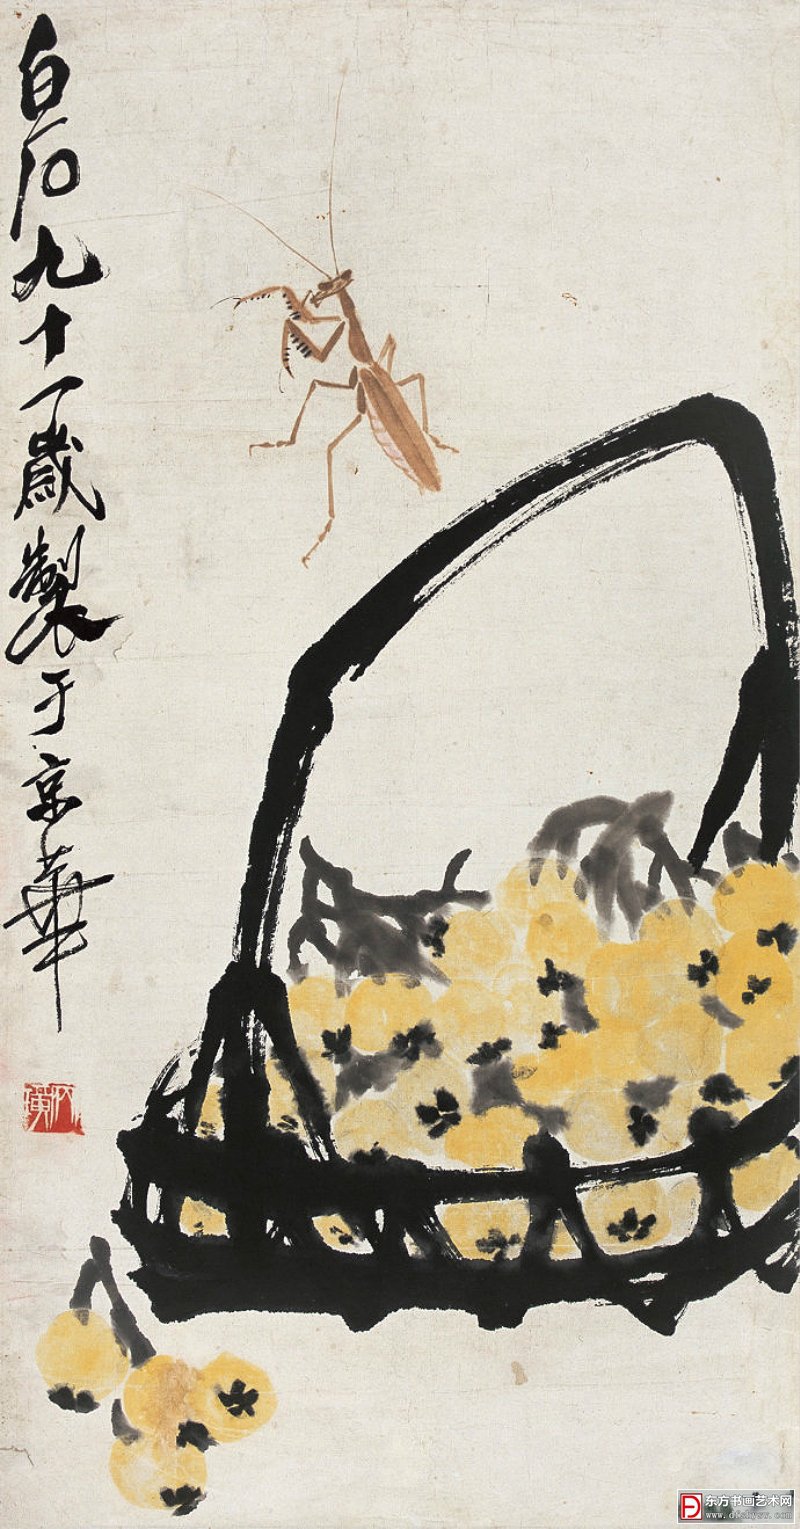 白石九十一歲製于京華
东方书画艺术网